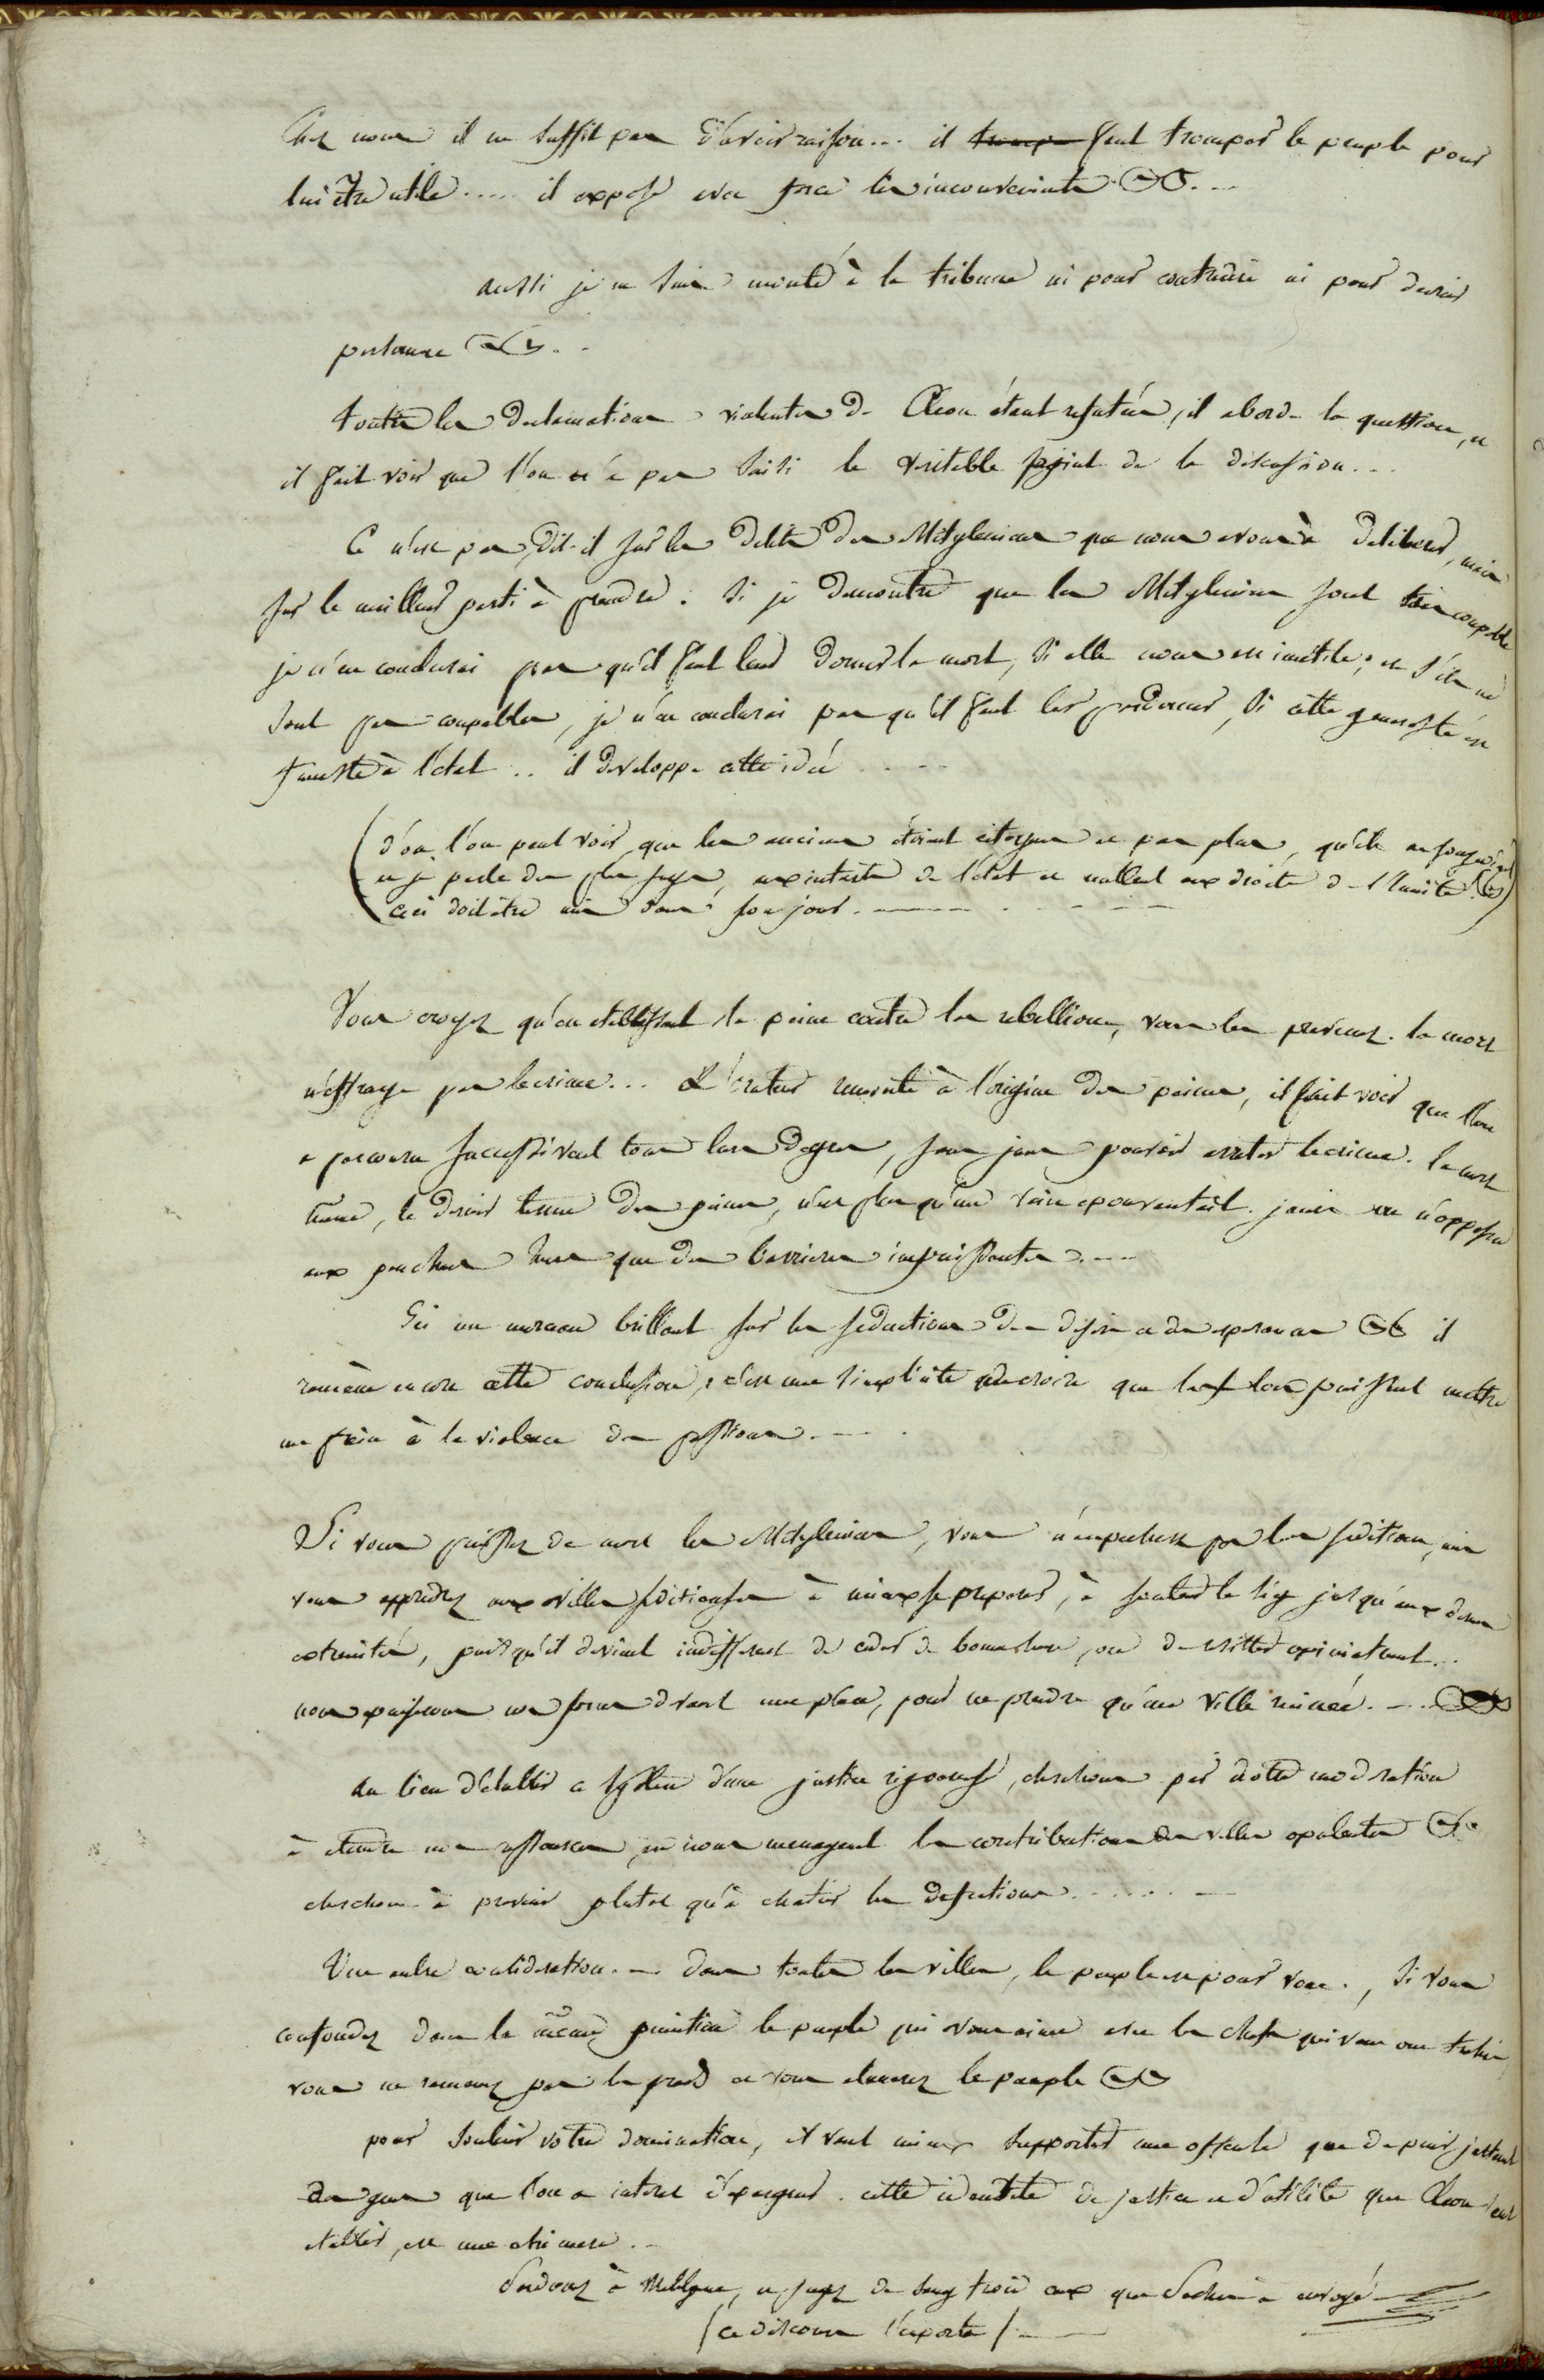 Chez nous il ne suffit pas d'avoir raison... il ~~trompe~~ faut tromper le peuple pour
lui être utile..... il expose avec force les inconvenients &c...
aussi je ne suis monté à la tribune ni pour contredire ni pour decrier
personne &c...
toutes les declamations violentes de Cleon étant refutées, il aborde la question, et
il fait voir que l'on n'a pas saisi le veritable point de la discussion...
Ce n'est pas, dit-il sur les delits des Mityleniens que nous avons à deliberer, mais
sur le meilleur parti à prendre. Si je demontre que les Mityleniens sont très coupables
je n'en conclurai pas qu'il faut leur donner la mort, si elle nous est inutile; et s'ils ne
sont pas coupables, je n'en conclurai pas qu'il faut leur pardonner, si cette generosité est
funeste à l'état.. il developpe cette idée....
(d'où l'on peut voir que les anciens étoient citoyens et pas plus, qu'ils ne songeoient
et je parle des plus sages, aux interets de l'etat et nullement aux droits de l'humanité &c)
ceci doit être mis dans son jour.
Vous croyez qu'en etablissant la peine contre les rebellions, vous les prevenez. la mort
n'effraye pas le crime... L'orateur remonte à l'origine des peines, il fait voir que l'on
a parcouru successivement tous leurs degrés, sans jamais pouvoir arreter le crime. la mort
même, le dernier terme des peines, n'est plus qu'un vain epouvantail. jamais on n'opposera
aux penchans que des barrieres impuissantes....
Ici un morceau brillant sur les seductions des desirs et des esperances &c il
ramène encore cette conclusion, c'est une simplicité de croire que les loix puissent mettre
un frein à la violence des passions....
Si vous punissez de mort les Mityleniens, vous n'empecherez pas les seditions, mais
vous apprendrez aux villes seditieuses à mieux se preparer, à soutenir le siege jusqu'aux dernieres
extremités, puisqu'il devient indifferent de ceder de bonne heure, ou de resister opiniatrement...
nous epuiserons nos forces devant une place, pour ne prendre qu'une ville ruinée....
Au lieu d'etablir ce systême d'une justice rigoureuse, cherchons par notre moderation
à etendre nos ressources, en nous menageant les contributions des villes opulentes &c.
cherchons à prevenir plutot qu'à chatier les defections......
Une autre consideration... dans toutes les villes, le peuple est pour vous., si vous
confondez dans la même punition le peuple qui vous aime avec les chefs qui vous ont trahis,
vous ne ramenez pas les grands et vous alienerez le peuple &c
pour soutenir votre domination, il vaut mieux supporter une offense que de punir justement
des gens que l'on a interet d'epargner. cette identité de justice et d'utilité que Cleon veut
etablir, est une chimere..
Pardonnez à Mitylene, et jugez de sang froid ceux que Paches a envoyé
(ce discours l'emporta)